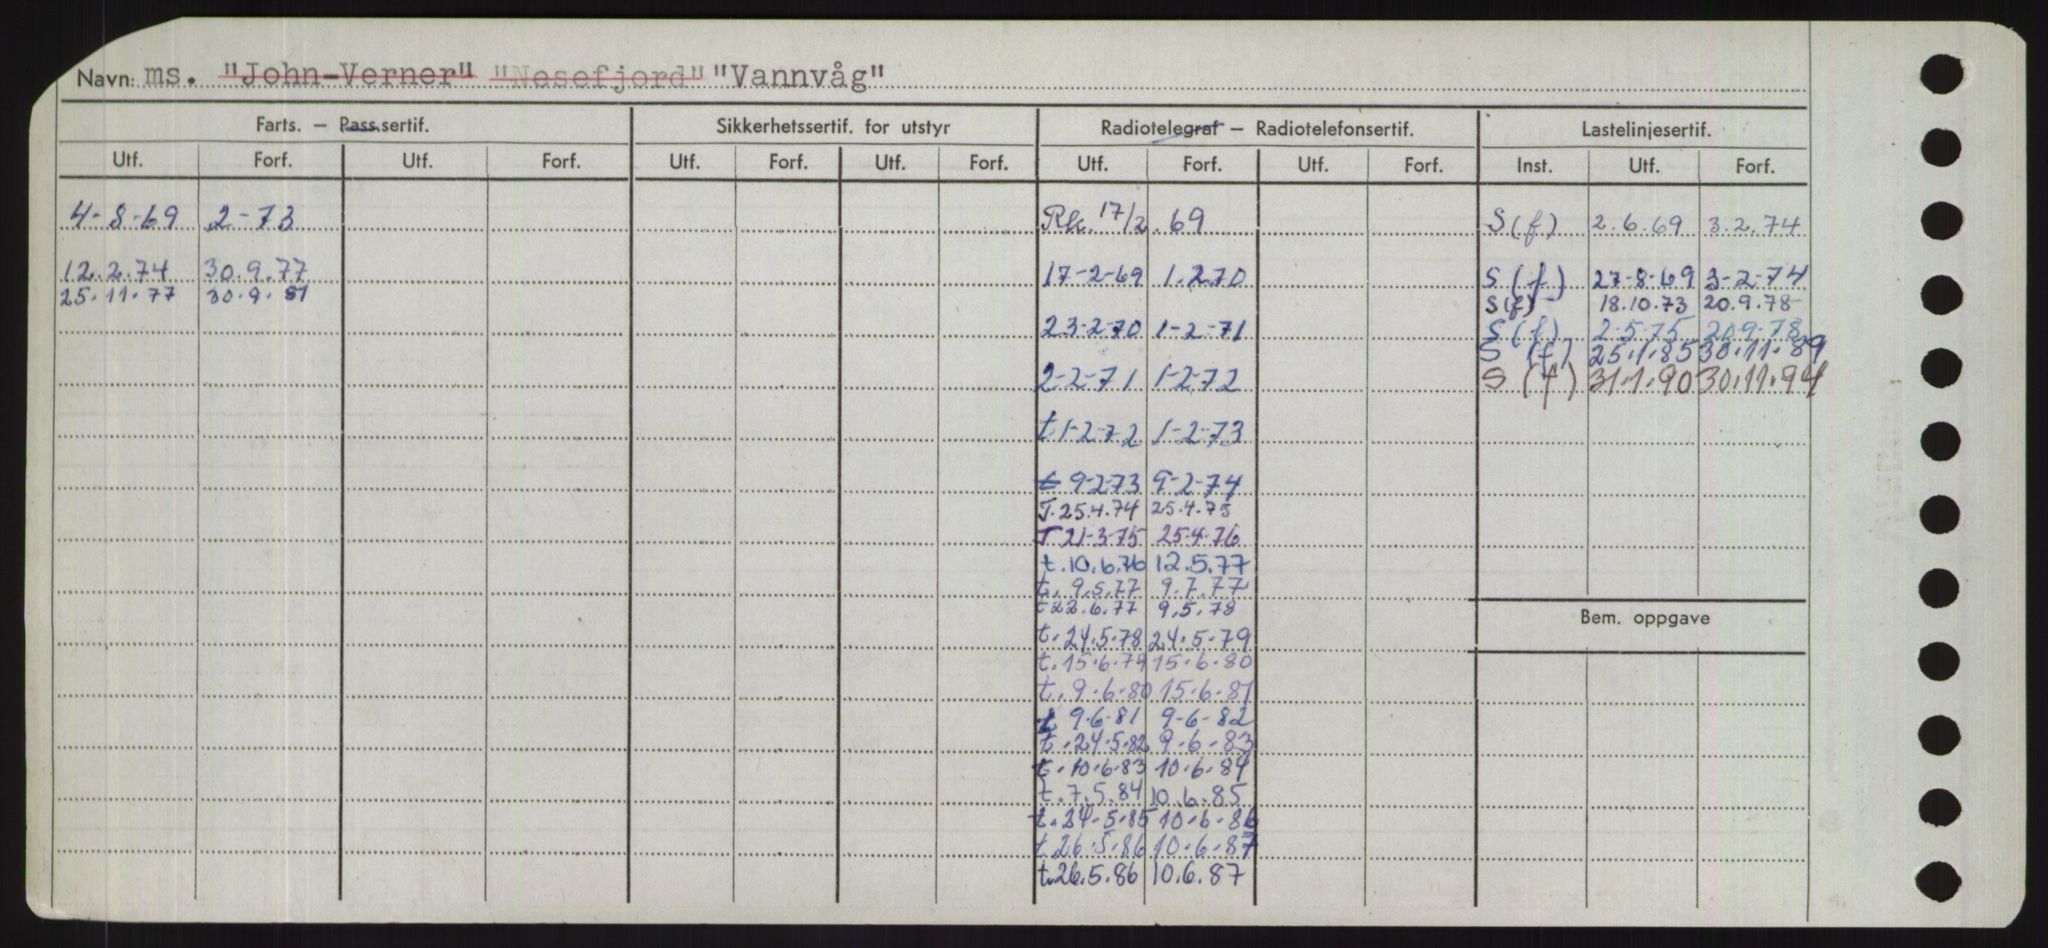 Navn: ms. "John-Verner" "Nesefjord" "Vannvåg"
Farts. — Pass.sertif. Sikkerhetssertif. for utstyr Radiotelegraf — Radiotelefonsertif. Lastelinjesertif.
Utf. Forf. Utf. Forf. Utf. Forf. Utf. Forf. Utf. Forf. Utf. Forf. Inst. Utf. Forf.
4-8-69 2-73 Rk. 17/2.69 S(f) 2.6.69 3.2.74
12.2.74 30.9.77 17-2-69 1.2.70 S(f) 27-8-69 3-2-74
25.11.77 30.9.81 S(f) 18.10.73 20.9.78
23-2-70 1-2-71 S(f) 2-5-75 20-9-78
S (f) 25.1.85 30.11.89
2-2-71 1-2-72 S (f) 31.1.90 30.11.94
t 1-2-72 1-2-73
t 9-2-73 9-2-74
T. 25.4.74 25.4.75
T 21-3-75 25-4-76
t. 10.6.76 12.5.77
t. 9.5.77 9.7.77
t 22.6.77 9.5.78
Bem. oppgave
t. 24.5.78 24.5.79
t. 15.6.79 15.6.80
t. 9.6.80 15.6.81
t 9.6.81 9-6-82
t. 24.5.82 9.6.83
t. 10.6.83 10.6.84
t. 7.5.84 10.6.85
t. 24.5.85 10.6.86
t 26.5.86 10.6.87
t. 26.5.86 10.6.87